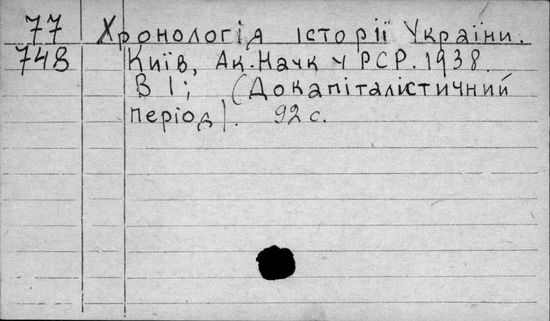 77 Хронологія історії України.
748 Київ, Ак. Наук УРСР. 1938.
В 1; (Докапіталістичний
період). 92 с.